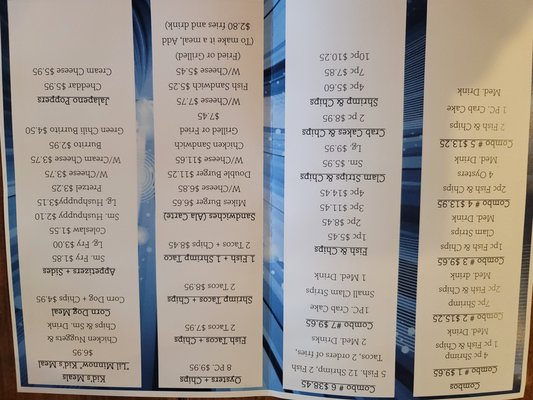 Combos
Combo # 1 $9.65
4 pc Shrimp
1 pc Fish & Chips
Med. Drink
Combo # 2 $15.25
7pc Shrimp
2pc Fish & Chips
Med. drink
Combo # 3 $9.65
1pc Fish & Chips
Clam Strips
Med. Drink
Combo # 4 $13.95
2pc Fish & Chips
4 Oysters
Med. Drink
Combo # 5 $13.25
2 Fish & Chips
1 PC. Crab Cake
Med. Drink
Combo # 6 $38.45
5 Fish, 12 Shrimp, 2 Fish
Tacos, 2 orders of fries,
2 Med. Drinks
Combo #7 $9.65
1PC. Crab Cake
Small Clam Strips
1 Med. Drink
Fish & Chips
1pc $5.45
2pc $8.45
3pc $11.45
4pc $14.45
Clam Strips & Chips
Sm. $5.95
Lg. $9.95
Crab Cakes & Chips
2 pc $8.95
Shrimp & Chips
4pc $5.60
7pc $7.85
10pc $10.25
Oysters + Chips
8 PC. $9.95
Fish Tacos + Chips
2 Tacos $7.95
Shrimp Tacos + Chips
2 Tacos $8.95
1 Fish + 1 Shrimp Taco
2 Tacos + Chips $8.45
Sandwiches (Ala Carte)
Mikes Burger $6.65
W/Cheese $6.85
Double Burger $11.25
W/Cheese $11.65
Chicken Sandwich
Grilled or Fried
$7.45
W/Cheese $7.75
Fish Sandwich $5.25
W/Cheese $5.45
(Fried or Grilled)
(To make it a meal, Add
$2.80 fries and drink)
Kid's Meals
"Lil Minnow" Kid's Meal
$6.95
Chicken Nuggets &
Chips & Sm. Drink
Corn Dog Meal
Corn Dog + Chips $4.95
Appetizers + Sides
Sm. Fry $1.85
Lg. Fry $3.00
Coleslaw $1.55
Sm. Hushpuppy $2.10
Lg. Hushpuppy $3.15
Pretzel $3.25
W/Cheese $3.75
W/Cream Cheese $3.75
Burrito $2.95
Green Chili Burrito $4.50
Jalapeno Poppers
Cheddar $5.95
Cream Cheese $5.95